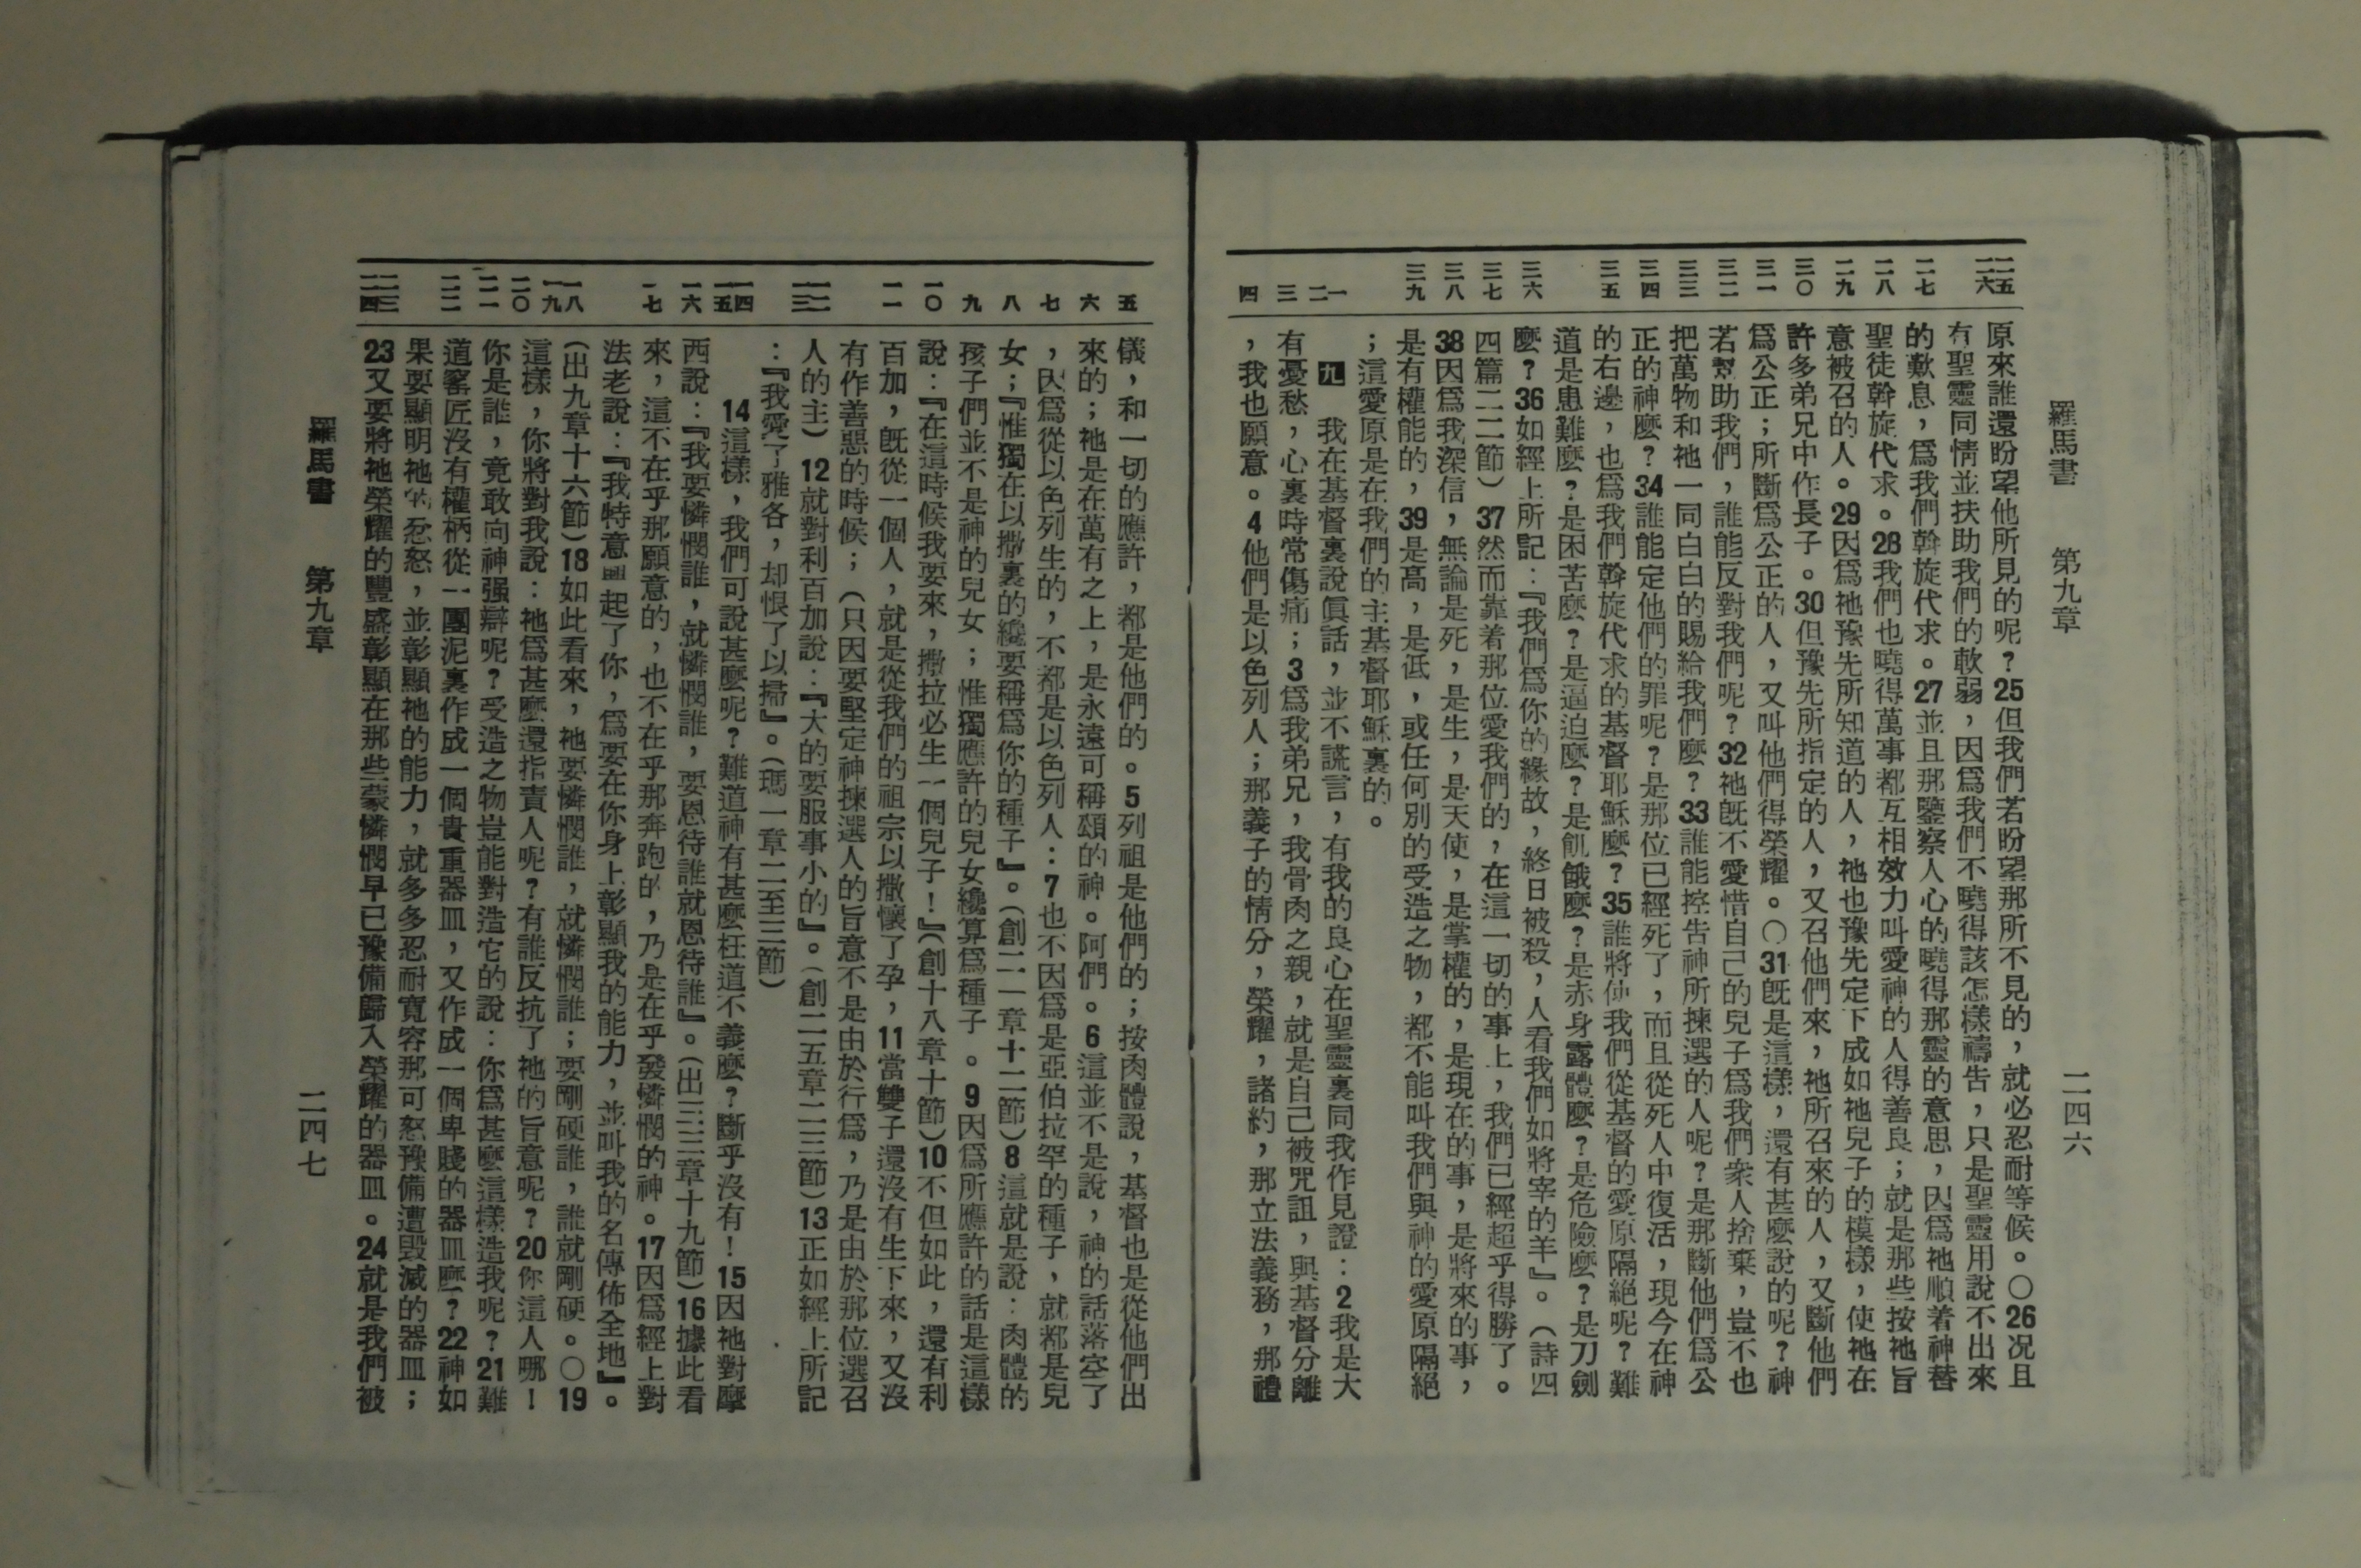 羅馬書　第九章　二四六
二五 二六 二七 二八 二九 三〇 三一 三二 三三 三四 三五 三六 三七 三八 三九 一 二 三 四
原來誰還盼望他所見的呢？25但我們若盼望那所不見的，就必忍耐等候。〇26況且
有聖靈同情並扶助我們的軟弱，因爲我們不曉得該怎樣禱告，只是聖靈用說不出來
的歎息，爲我們斡旋代求。27並且那鑒察人心的曉得那靈的意思，因爲祂順着神替
聖徒斡旋代求。28我們也曉得萬事都互相效力叫愛神的人得善良；就是那些按祂旨
意被召的人。29因爲祂豫先所知道的人，祂也豫先定下成如祂兒子的模樣，使祂在
許多弟兄中作長子。30但豫先所指定的人，又召他們來，祂所召來的人，又斷他們
爲公正；所斷爲公正的人，又叫他們得榮耀。〇31旣是這樣，還有甚麼說的呢？神
若幫助我們，誰能反對我們呢？32祂旣不愛惜自己的兒子爲我們衆人捨棄，豈不也
把萬物和祂一同白白的賜給我們麼？33誰能控告神所揀選的人呢？是那斷他們爲公
正的神麼？34誰能定他們的罪呢？是那位已經死了，而且從死人中復活，現今在神
的右邊，也爲我們斡旋代求的基督耶穌麼？35誰將使我們從基督的愛原隔絕呢？難
道是患難麼？是困苦麼？是逼迫麼？是飢餓麼？是赤身露體麼？是危險麼？是刀劍
麼？36如經上所記：『我們爲你的緣故，終日被殺，人看我們如將宰的羊』。（詩四
四篇二二節）37然而靠着那位愛我們的，在這一切的事上，我們已經超乎得勝了。
38因爲我深信，無論是死，是生，是天使，是掌權的，是現在的事，是將來的事，
是有權能的，39是高，是低，或任何別的受造之物，都不能叫我們與神的愛原隔絕
；這愛原是在我們的主基督耶穌裏的。
九　我在基督裏說眞話，並不謊言，有我的良心在聖靈裏同我作見證：2我是大
有憂愁，心裏時常傷痛；3爲我弟兄，我骨肉之親，就是自己被咒詛，與基督分離
，我也願意。4他們是以色列人；那義子的情分，榮耀，諸約，那立法義務，那禮
五 六 七 八 九 一〇 一一 一二 一三 一四 一五 一六 一七 一八 一九 二〇 二一 二二 二三 二四
儀，和一切的應許，都是他們的。5列祖是他們的；按肉體說，基督也是從他們出
來的；祂是在萬有之上，是永遠可稱頌的神。阿們。6這並不是說，神的話落空了
，因爲從以色列生的，不都是以色列人：7也不因爲是亞伯拉罕的種子，就都是兒
女；『惟獨在以撒裏的纔要稱爲你的種子』。（創二一章十二節）8這就是說：肉體的
孩子們並不是神的兒女；惟獨應許的兒女纔算爲種子。9因爲所應許的話是這樣
說：『在這時候我要來，撒拉必生一個兒子！』（創十八章十節）10不但如此，還有利
百加，旣從一個人，就是從我們的祖宗以撒懷了孕，11當雙子還沒有生下來，又沒
有作善惡的時候；（只因要堅定神揀選人的旨意不是由於行爲，乃是由於那位選召
人的主）12就對利百加說：『大的要服事小的』。（創二五章二三節）13正如經上所記
：『我愛了雅各，却恨了以掃』。（瑪一章二至三節）
14這樣，我們可說甚麼呢？難道神有甚麼枉道不義麼？斷乎沒有！15因祂對摩
西說：『我要憐憫誰，就憐憫誰，要恩待誰就恩待誰』。（出三三章十九節）16據此看
來，這不在乎那願意的，也不在乎那奔跑的，乃是在乎發憐憫的神。17因爲經上對
法老說：『我特意興起了你，爲要在你身上彰顯我的能力，並叫我的名傳佈全地』。
（出九章十六節）18如此看來，祂要憐憫誰，就憐憫誰；要剛硬誰，誰就剛硬。〇19
這樣，你將對我說：祂爲甚麼還指責人呢？有誰反抗了祂的旨意呢？20你這人哪！
你是誰，竟敢向神强辯呢？受造之物豈能對造它的說：你爲甚麼這樣造我呢？21難
道窰匠沒有權柄從一團泥裏作成一個貴重器皿，又作成一個卑賤的器皿麼？22神如
果要顯明祂的忿怒，並彰顯祂的能力，就多多忍耐寬容那可怒豫備遭毀滅的器皿；
23又要將祂榮耀的豐盛彰顯在那些蒙憐憫早已豫備歸入榮耀的器皿。24就是我們被
羅馬書　第九章　二四七